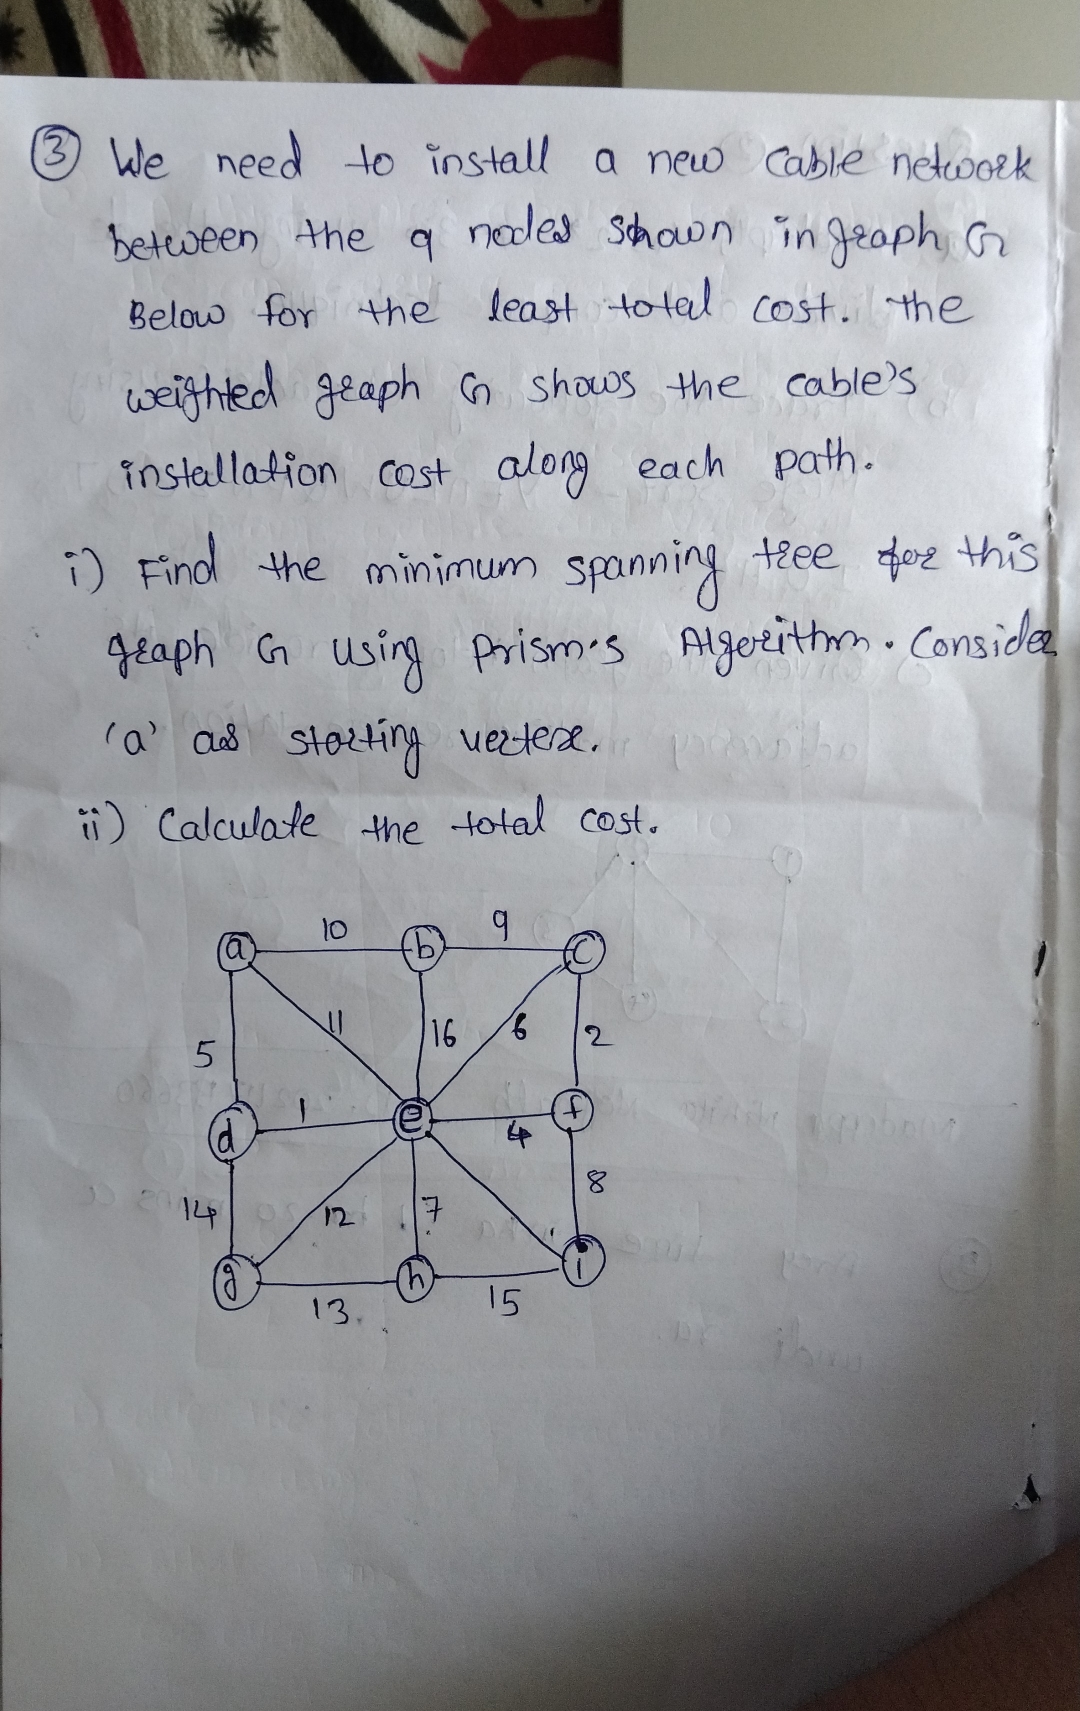 ③ We need to install a new cable network
between the 9 nodes shown in graph G
Below for the least total cost. The
weighted graph G shows the cable's
installation cost along each path.
i) Find the minimum spanning tree for this
graph G using Prism's Algorithm. Consider
'a' as starting vertex.
ii) Calculate the total cost.
a 10 b 9 c
5 11 16 6 2
d 1 e 4 f
14 12 7 8
g 13 h 15 i